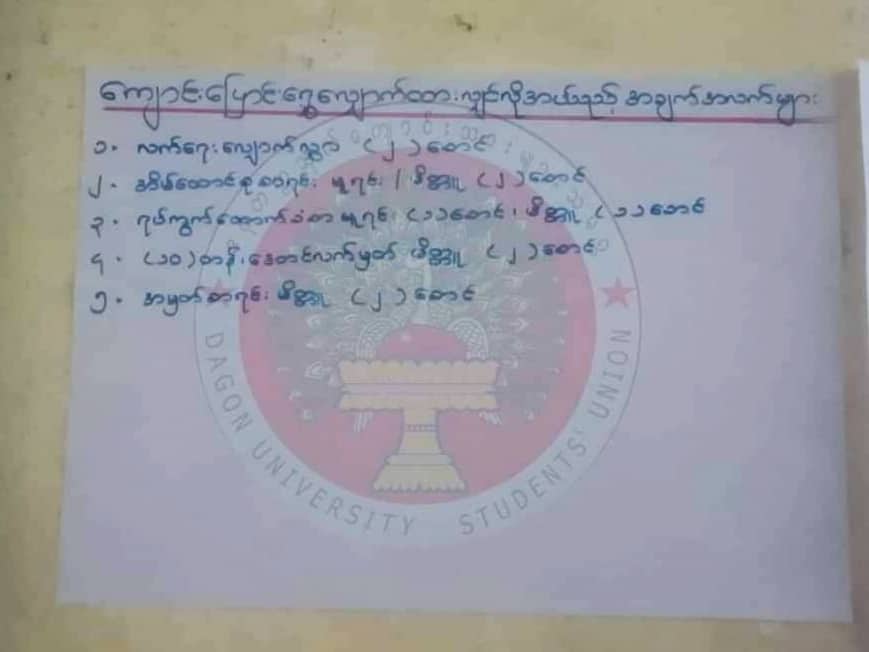 ကျောင်းပြောင်းရွှေ့လျှောက်ထားလျှင်လိုအပ်သည့် အချက်အလက်များ
၁။ လက်ရေးလျှောက်လွှာ (၂) စောင်
၂။ အိမ်ထောင်စုစာရင်း မူရင်း / မိတ္တူ (၂) စောင်
၃။ ရပ်ကွက်ထောက်ခံစာ မူရင်း (၁) စောင်၊ မိတ္တူ (၁) စောင်
၄။ (၁၀) တန်းအောင်လက်မှတ် မိတ္တူ (၂) စောင်
၅။ အမှတ်စာရင်း မိတ္တူ (၂) စောင်
DAGON UNIVERSITY STUDENTS' UNION